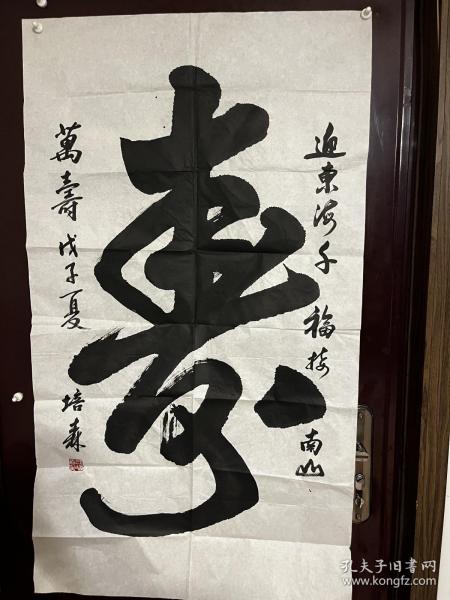 迎东海千福接南山
壽
萬壽戊子夏 培森
孔夫子旧书网
www.kongfz.com